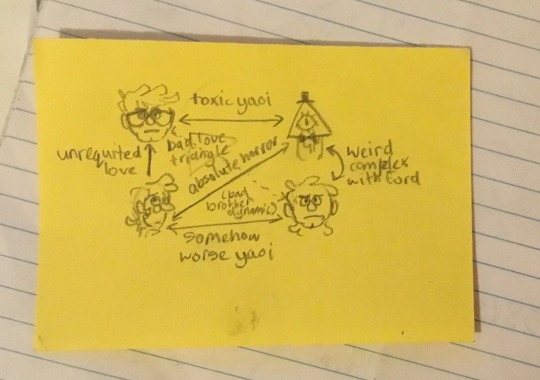 toxic yaoi
bad love
triangle
unrequited
love
absolute horror
weird
complex
with Ford
(bad
brother
dynamic)
somehow
worse yaoi